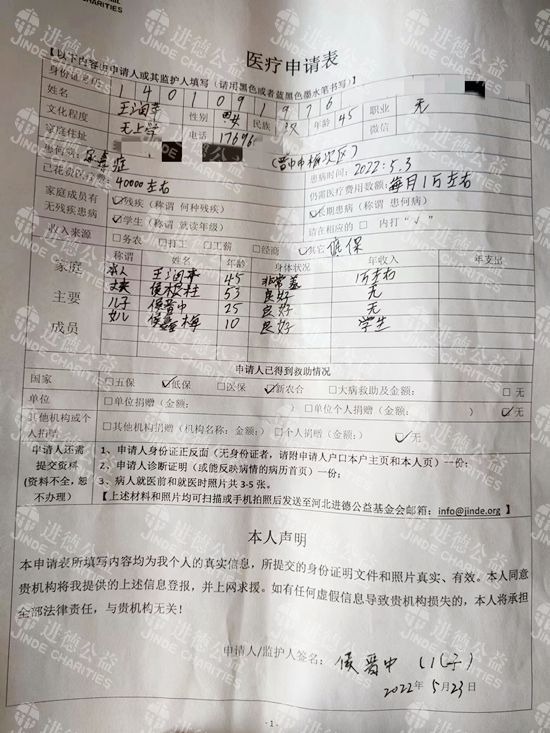 CHARITIES
医疗申请表
【以下内容由申请人或其监护人填写（请用黑色或者蓝黑色墨水笔书写）】
身份证号码 1 4 0 1 0 9 1 9 7 6
姓名 王润苹 性别 女 民族 汉 年龄 45 职业 无
文化程度 无上学 电话 17696 微信
家庭住址 （晋中市榆次区）
患何病： 尿毒症 患病时间：2022.5.3
已花费医疗费： 40000左右 仍需医疗费用数额：每月1万左右
家庭成员有无残疾患病 ☑残疾（称谓 何种残疾） ☑长期患病（称谓 患何病）
☑学生（称谓 就读年级） 请在相应的 □ 内打"√"
收入来源 □务农 □打工 □工薪 □经商 ☑其它 低保
家庭主要成员 称谓 姓名 年龄 身体状况 年收入 年支出
本人 王润苹 45 非常差 1万左右
丈夫 侯根柱 53 良好 无
儿子 侯晋中 25 良好 无
女儿 梅 10 良好 学生
申请人已得到救助情况
国家 □五保 ☑低保 □医保 ☑新农合 □大病救助及金额： □无
单位 □单位捐赠（金额： ） □单位个人捐赠（金额： ） ☑无
其他机构或个人捐赠 □其他机构捐赠（机构名称：金额：） □个人捐赠（金额：） ☑无
申请人还需提交资料（资料不全，恕不办理）
1、申请人身份证正反面（无身份证者，请附申请人户口本户主页和本人页）一份；
2、申请人诊断证明（或能反映病情的病历首页）一份；
3、病人就医前和就医时照片共 3-5 张。
【上述材料和照片均可扫描或手机拍照后发送至河北进德公益基金会邮箱：info@jinde.org】
本人声明
本申请表所填写内容均为我个人的真实信息，所提交的身份证明文件和照片真实、有效。本人同意
贵机构将我提供的上述信息登报，并上网求援。如有任何虚假信息导致贵机构损失的，本人将承担
全部法律责任，与贵机构无关！
申请人/监护人签名： 侯晋中
2022年5月23日
- 1 -
进德公益
JINDE CHARITIES